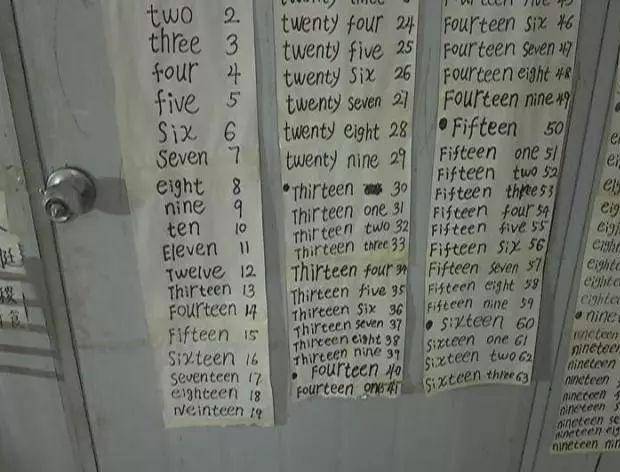 two 2
three 3
four 4
five 5
six 6
seven 7
eight 8
nine 9
ten 10
Eleven 11
Twelve 12
Thirteen 13
Fourteen 14
Fifteen 15
Sixteen 16
Seventeen 17
eighteen 18
nveinteen 19
twenty four 24
twenty five 25
twenty six 26
twenty seven 27
twenty eight 28
twenty nine 29
•Thirteen 30
Thirteen one 31
Thirteen two 32
Thirteen three 33
Thirteen four 34
Thirteen five 35
Thirteen six 36
Thirteen seven 37
Thirteen eight 38
Thirteen nine 39
• Fourteen 40
Fourteen one 41
Fourteen six 46
Fourteen seven 47
Fourteen eight 48
Fourteen nine 49
• Fifteen 50
Fifteen one 51
Fifteen two 52
Fifteen three 53
Fifteen four 54
Fifteen five 55
Fifteen six 56
Fifteen seven 57
Fifteen eight 58
Fifteen nine 59
• sixteen 60
sixteen one 61
sixteen two 62
sixteen three 63
nineteen
nineteen
nineteen
nineteen
nineteen